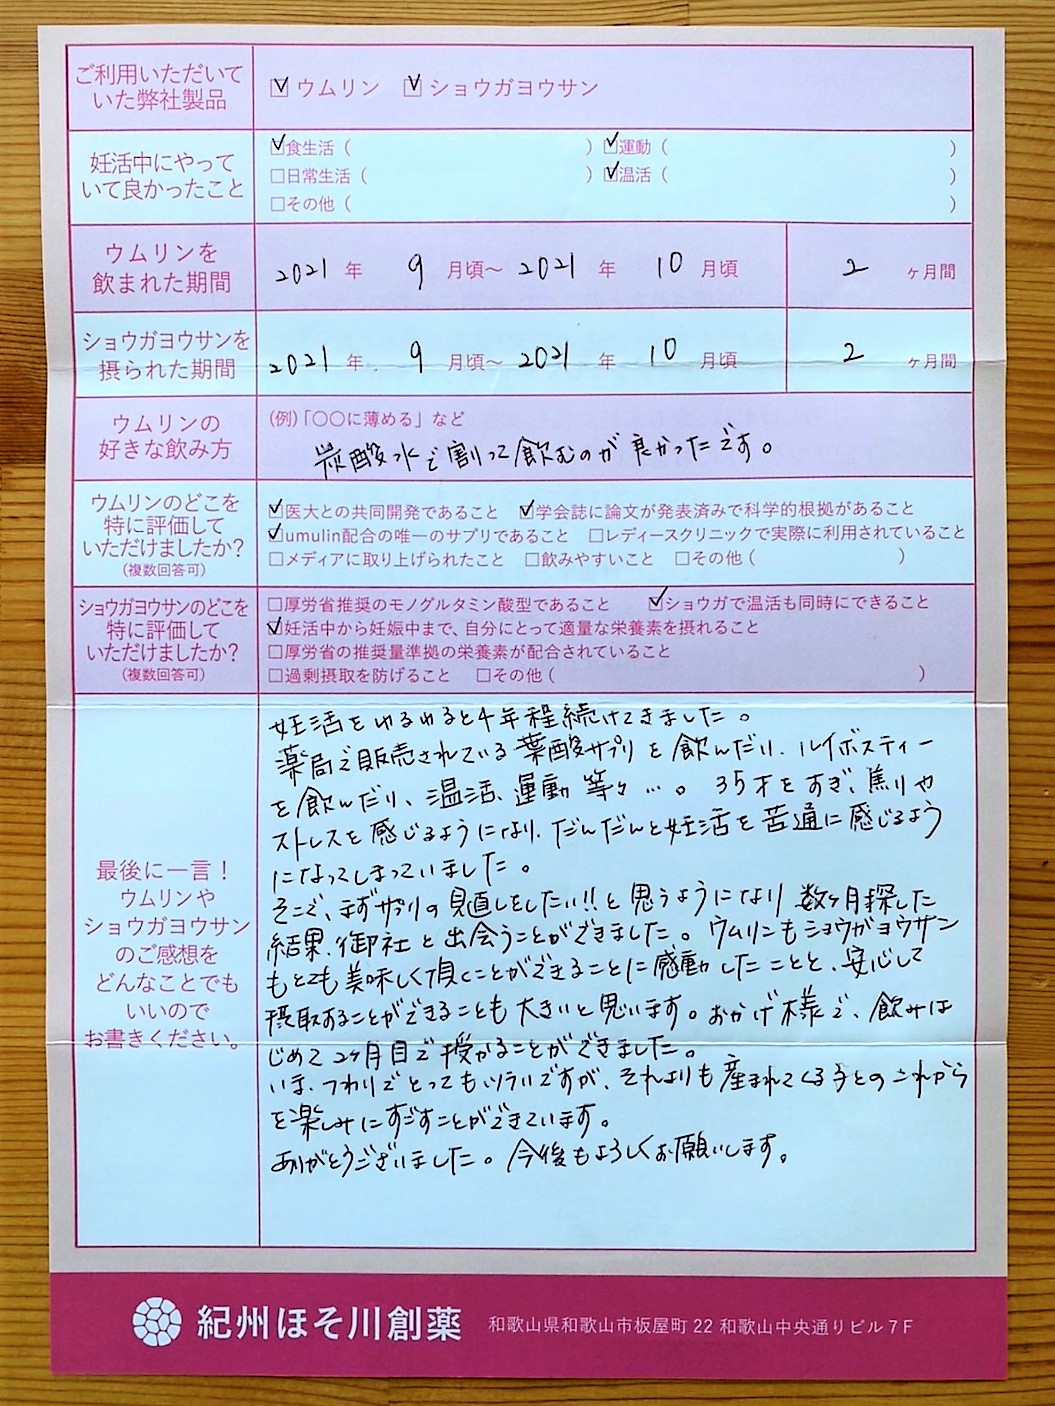 ご利用いただいて
いた弊社製品
☑ウムリン ☑ショウガヨウサン
妊活中にやって
いて良かったこと
☑食生活( ) ☑運動( )
□日常生活( ) ☑温活( )
□その他( )
ウムリンを
飲まれた期間
2021 年 9 月頃〜 2021 年 10 月頃 2 ヶ月間
ショウガヨウサンを
摂られた期間
2021 年 9 月頃〜 2021 年 10 月頃 2 ヶ月間
ウムリンの
好きな飲み方
(例)「〇〇に薄める」など
炭酸水で割って飲むのが良かったです。
ウムリンのどこを
特に評価して
いただけましたか?
(複数回答可)
☑医大との共同開発であること ☑学会誌に論文が発表済みで科学的根拠があること
☑umulin配合の唯一のサプリであること □レディースクリニックで実際に利用されていること
□メディアに取り上げられたこと □飲みやすいこと □その他( )
ショウガヨウサンのどこを
特に評価して
いただけましたか?
(複数回答可)
□厚労省推奨のモノグルタミン酸型であること ☑ショウガで温活も同時にできること
☑妊活中から妊娠中まで、自分にとって適量な栄養素を摂れること
□厚労省の推奨量準拠の栄養素が配合されていること
□過剰摂取を防げること □その他( )
最後に一言!
ウムリンや
ショウガヨウサン
のご感想を
どんなことでも
いいので
お書きください。
妊活をゆるゆると4年程続けてきました。
薬局で販売されている葉酸サプリを飲んだり、ルイボスティー
を飲んだり、温活、運動等々…。35才をすぎ、焦りや
ストレスを感じるようになり、だんだんと妊活を苦通に感じるよう
になってしまっていました。
そこで、まずサプリの見直しをしたい!!と思うようになり数ヶ月探した
結果、御社と出会うことができました。ウムリンもショウガヨウサン
もとても美味しく頂くことができることに感動したことと、安心して
摂取することができることも大きいと思います。おかげ様で、飲みは
じめて2ヶ月目で授かることができました。
いま、つわりでとってもツライですが、それよりも産まれてくる子とのこれから
を楽しみにすごすことができています。
ありがとうございました。今後もよろしくお願いします。
紀州ほそ川創薬 和歌山県和歌山市板屋町 22 和歌山中央通りビル 7 F